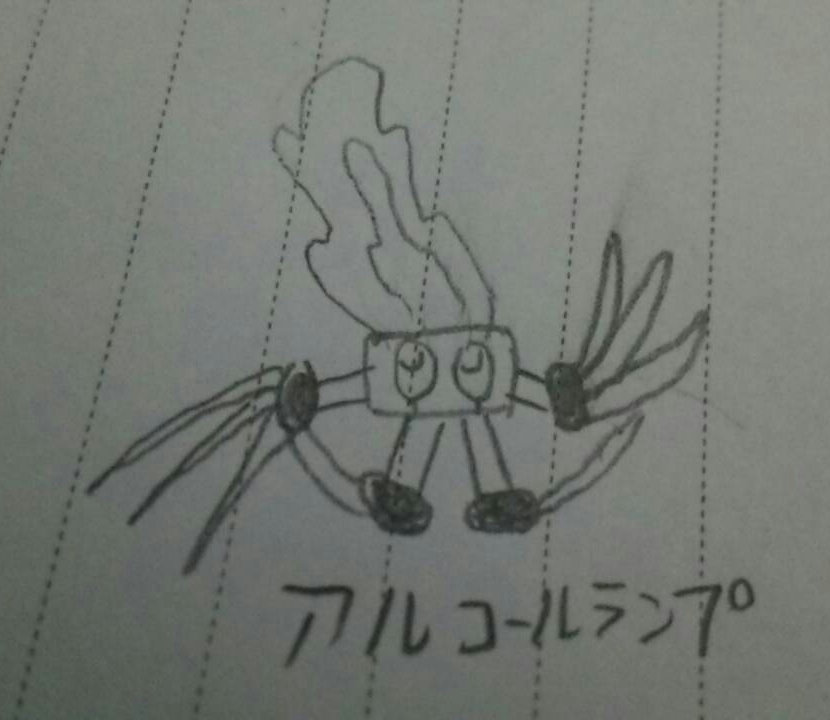 アルコールランプ